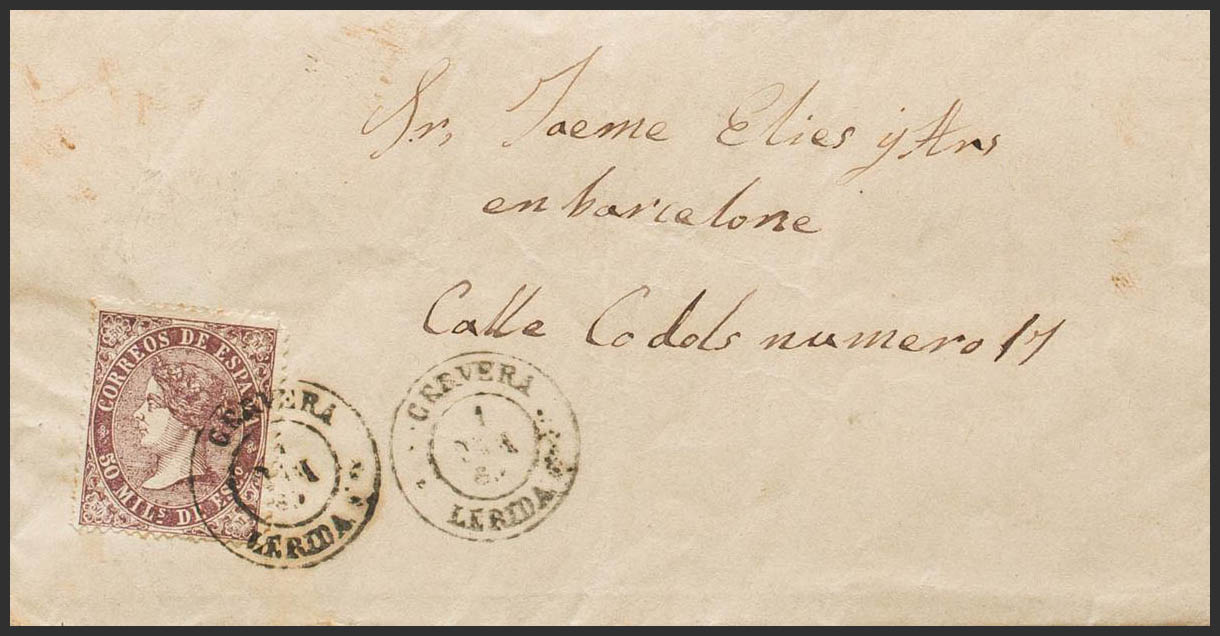 Sr. Jaeme Elies y Hrs
en barcelone
Calle Codols numero 17
CORREOS DE ESPAÑA
50 MILS DE ESO
CERVERA
LERIDA
CERVERA
1
LERIDA